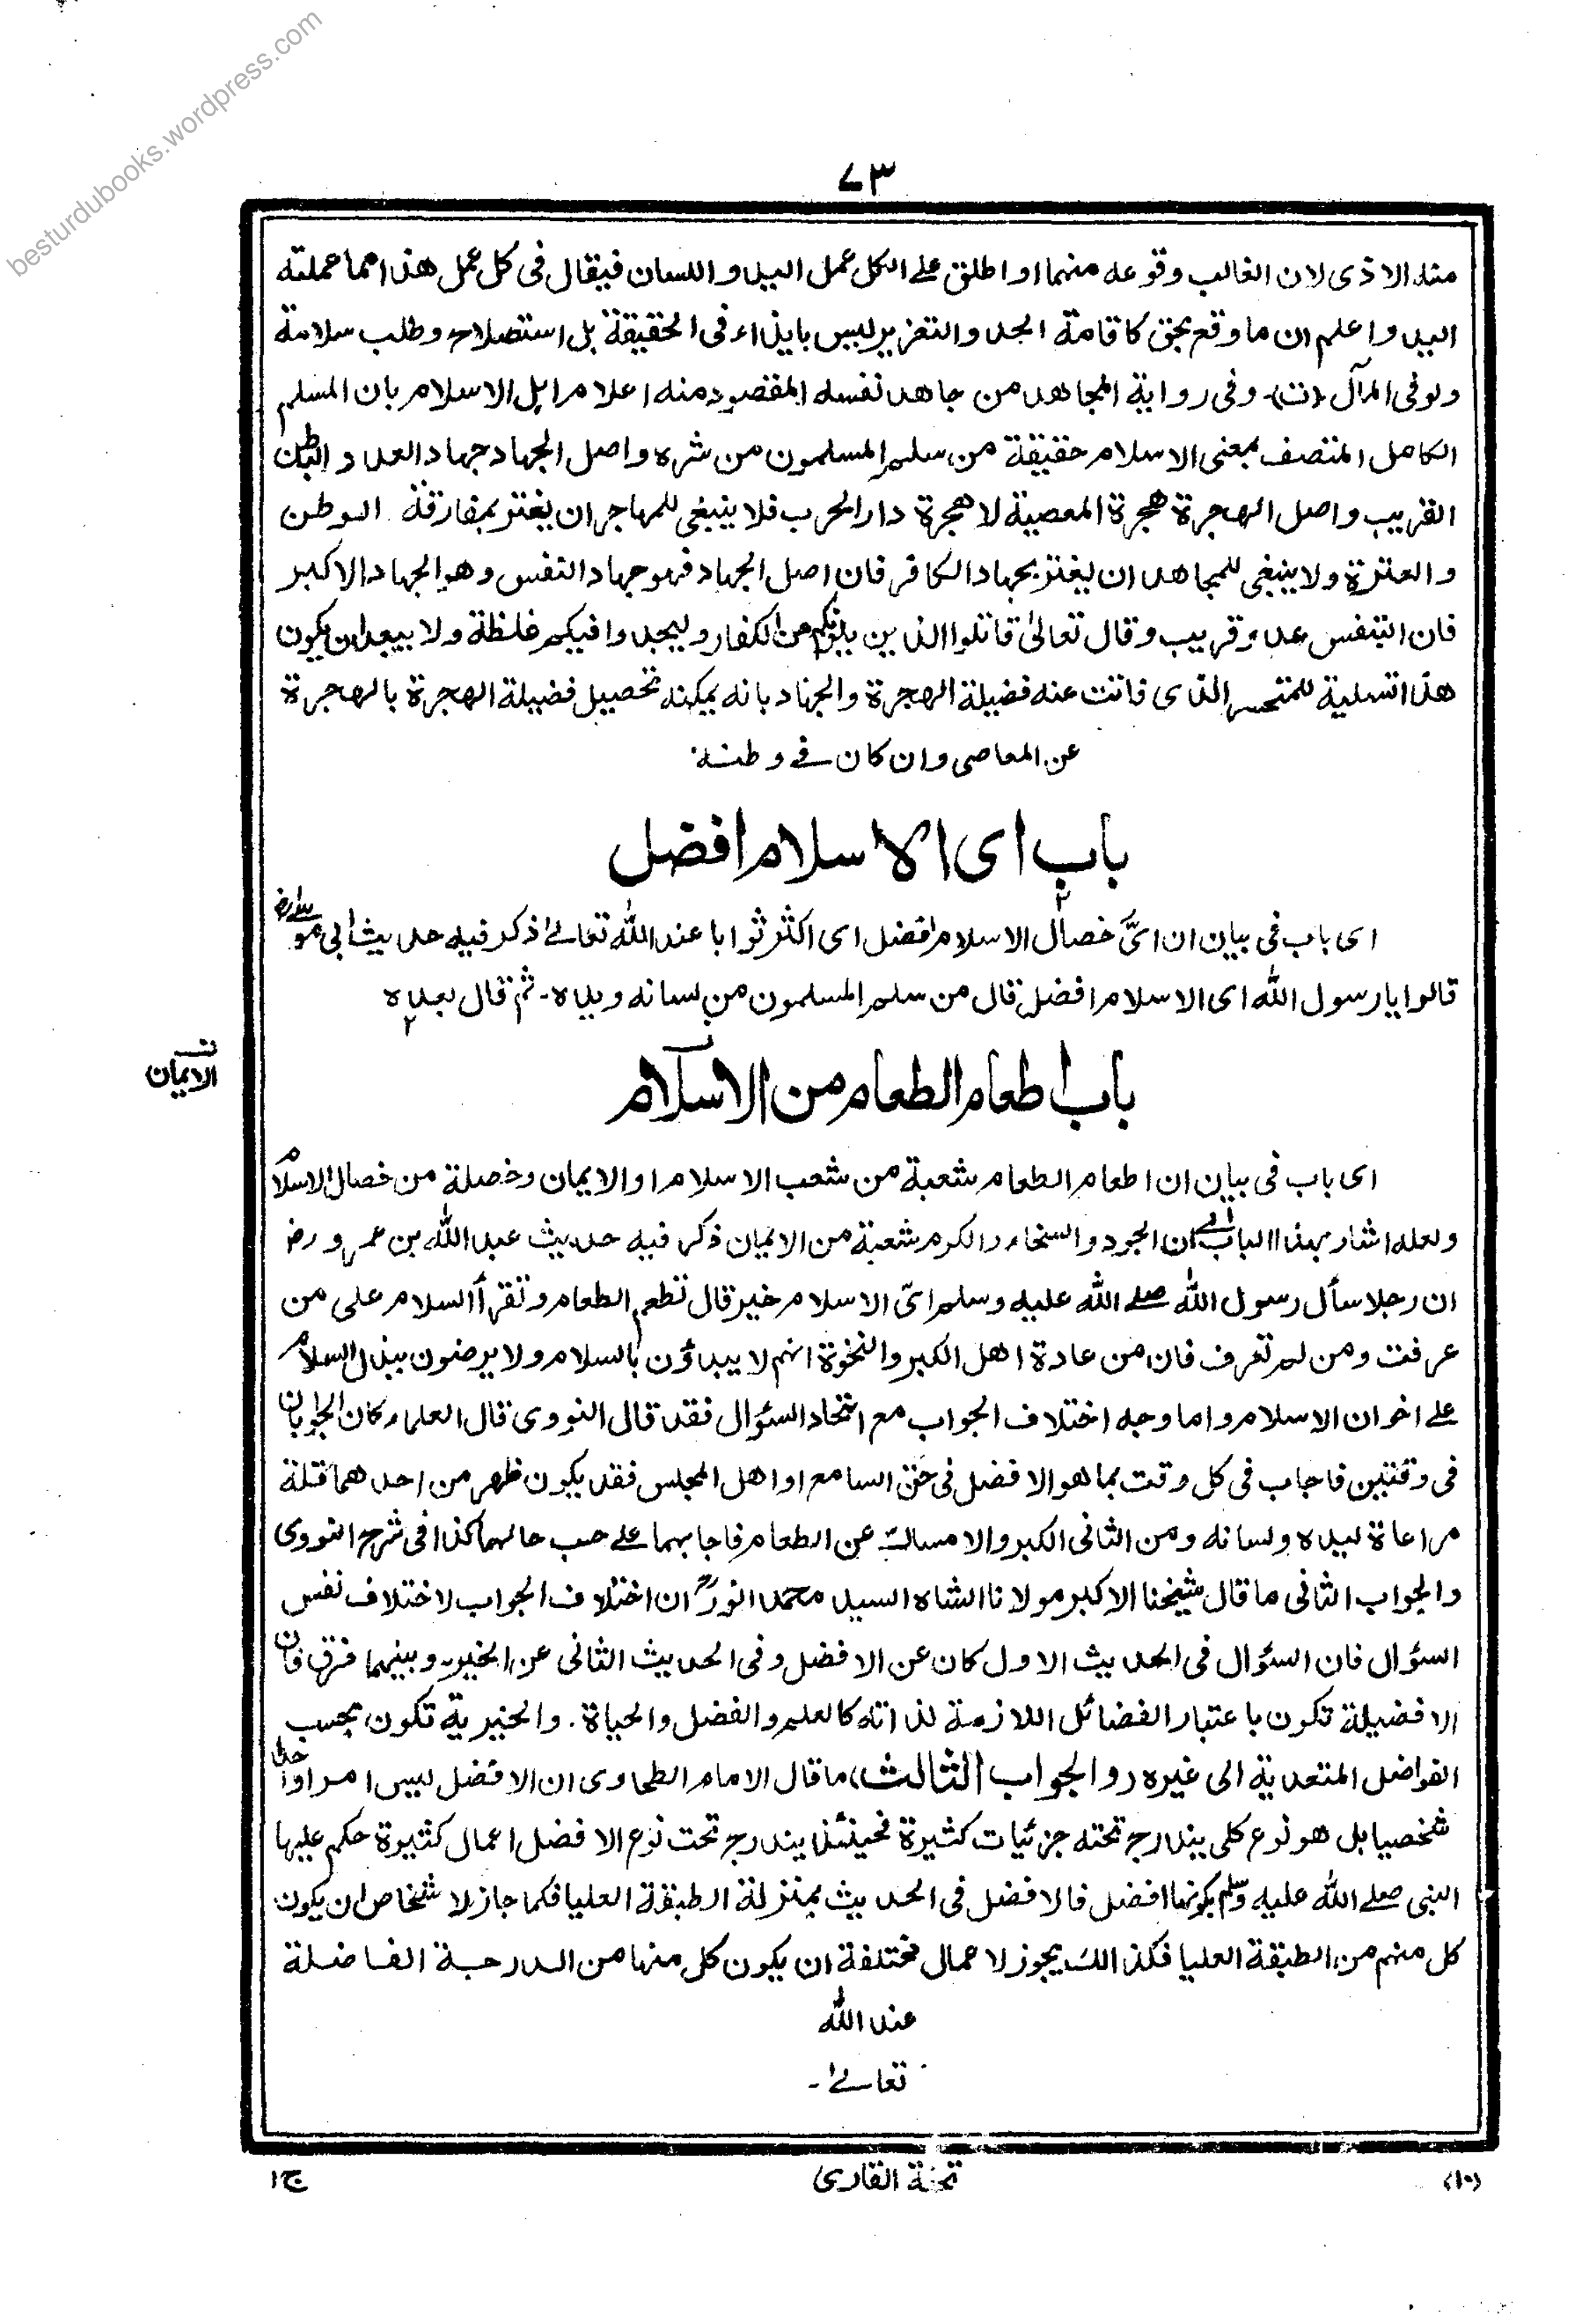 besturdubooks.wordpress.com
٧٣
منه الاذى لان الغالب وقوعه منهما او اطلق على الكل عمل اليد و اللسان فيقال فى كل عمل هذا مما عملته
اليد واعلم ان ما وقع بحق كاقامة الحد والتعزير ليس بايذاء فى الحقيقة بل استصلاح وطلب سلامة
ولو فى المآل (ت)۔ وفى رواية المجاهد من جاهد نفسه المقصود منه اعلام اهل الاسلام بان المسلم
الكامل المتصف بمعنى الاسلام حقيقة من سلم المسلمون من شره واصل الجهاد جهاد العدو الباطن
القريب واصل الهجرة هجرة المعصية لا هجرة دار الحرب فلا ينبغى للمهاجر ان يغتر بمفارقة الوطن
والعترة ولا ينبغى للمجاهد ان يغتر بجهاد الكافر فان اصل الجهاد فهو جهاد النفس وهو الجهاد الاكبر
فان النفس عدو قريب وقال تعالىٰ قاتلوا الذين يلونكم من الكفار وليجدوا فيكم غلظة ولا يبعد ان يكون
هذا تسلية للمتحسر الذى فاتت عنه فضيلة الهجرة والجهاد بانه يمكنه تحصيل فضيلة الهجرة بالهجرة
عن المعاصى وان كان فے وطنه
باب اى الاسلام افضل
اى باب فى بيان ان اىَّ خصال الاسلام افضل اى اكثر ثوابا عند الله تعالےٰ ذكر فيه حديث ابى موسىٰ رض
قالوا يا رسول الله اى الاسلام افضل قال من سلم المسلمون من لسانه ويده۔ ثم قال بعده
باب اطعام الطعام من الاسلام
ن
الايمان
اى باب فى بيان ان اطعام الطعام شعبة من شعب الاسلام او الايمان وخصلة من خصال الاسلام
ولعله اشار بهذا الباب الى ان الجود والسخاء والكرم شعبة من الايمان ذكر فيه حديث عبد الله بن عمرو رض
ان رجلا سأل رسول الله صلے الله عليه وسلم اىّ الاسلام خير قال تطعم الطعام وتقرأ السلام على من
عرفت ومن لم تعرف فان من عادة اهل الكبر والنخوة انهم لا يبدؤن بالسلام ولا يرضون ببذل السلام
علے اخوان الاسلام واما وجه اختلاف الجواب مع اتحاد السئوال فقد قال النووى قال العلماء كان الجوابان
فى وقتين فاجاب فى كل وقت بما هو الافضل فى حق السامع او اهل المجلس فقد يكون ظهر من احدهما قلة
مراعاة ليده ولسانه ومن الثانى الكبر والامساك عن الطعام فاجابهما علے حسب حالهما كذا فى شرح النووى
والجواب الثانى ما قال شيخنا الاكبر مولانا الشاه السيد محمد انورؒ ان اختلاف الجواب لاختلاف نفس
السئوال فان السئوال فى الحديث الاول كان عن الافضل وفى الحديث الثانى عن الخير۔ وبينهما فرق فان
الافضيلة تكون باعتبار الفضائل اللازمة لذاته كالعلم والفضل والحياة. والخيرية تكون بحسب
الفواضل المتعدية الى غيره (والجواب الثالث) ما قال الامام الطحاوى ان الافضل ليس امرا واحدا
شخصيا بل هو نوع كلى يندرج تحته جزئيات كثيرة فحينئذ يندرج تحت نوع الافضل اعمال كثيرة حكم عليها
النبى صلے الله عليه وسلم بكونها افضل فالافضل فى الحديث بمنزلة الطبقة العليا فكما جاز لاشخاص ان يكون
كل منهم من الطبقة العليا فكذالك يجوز لاعمال مختلفة ان يكون كل منها من الدرجة الفاضلة
عند الله
تعالےٰ۔
(١٠)
تحفة القارى
ج١